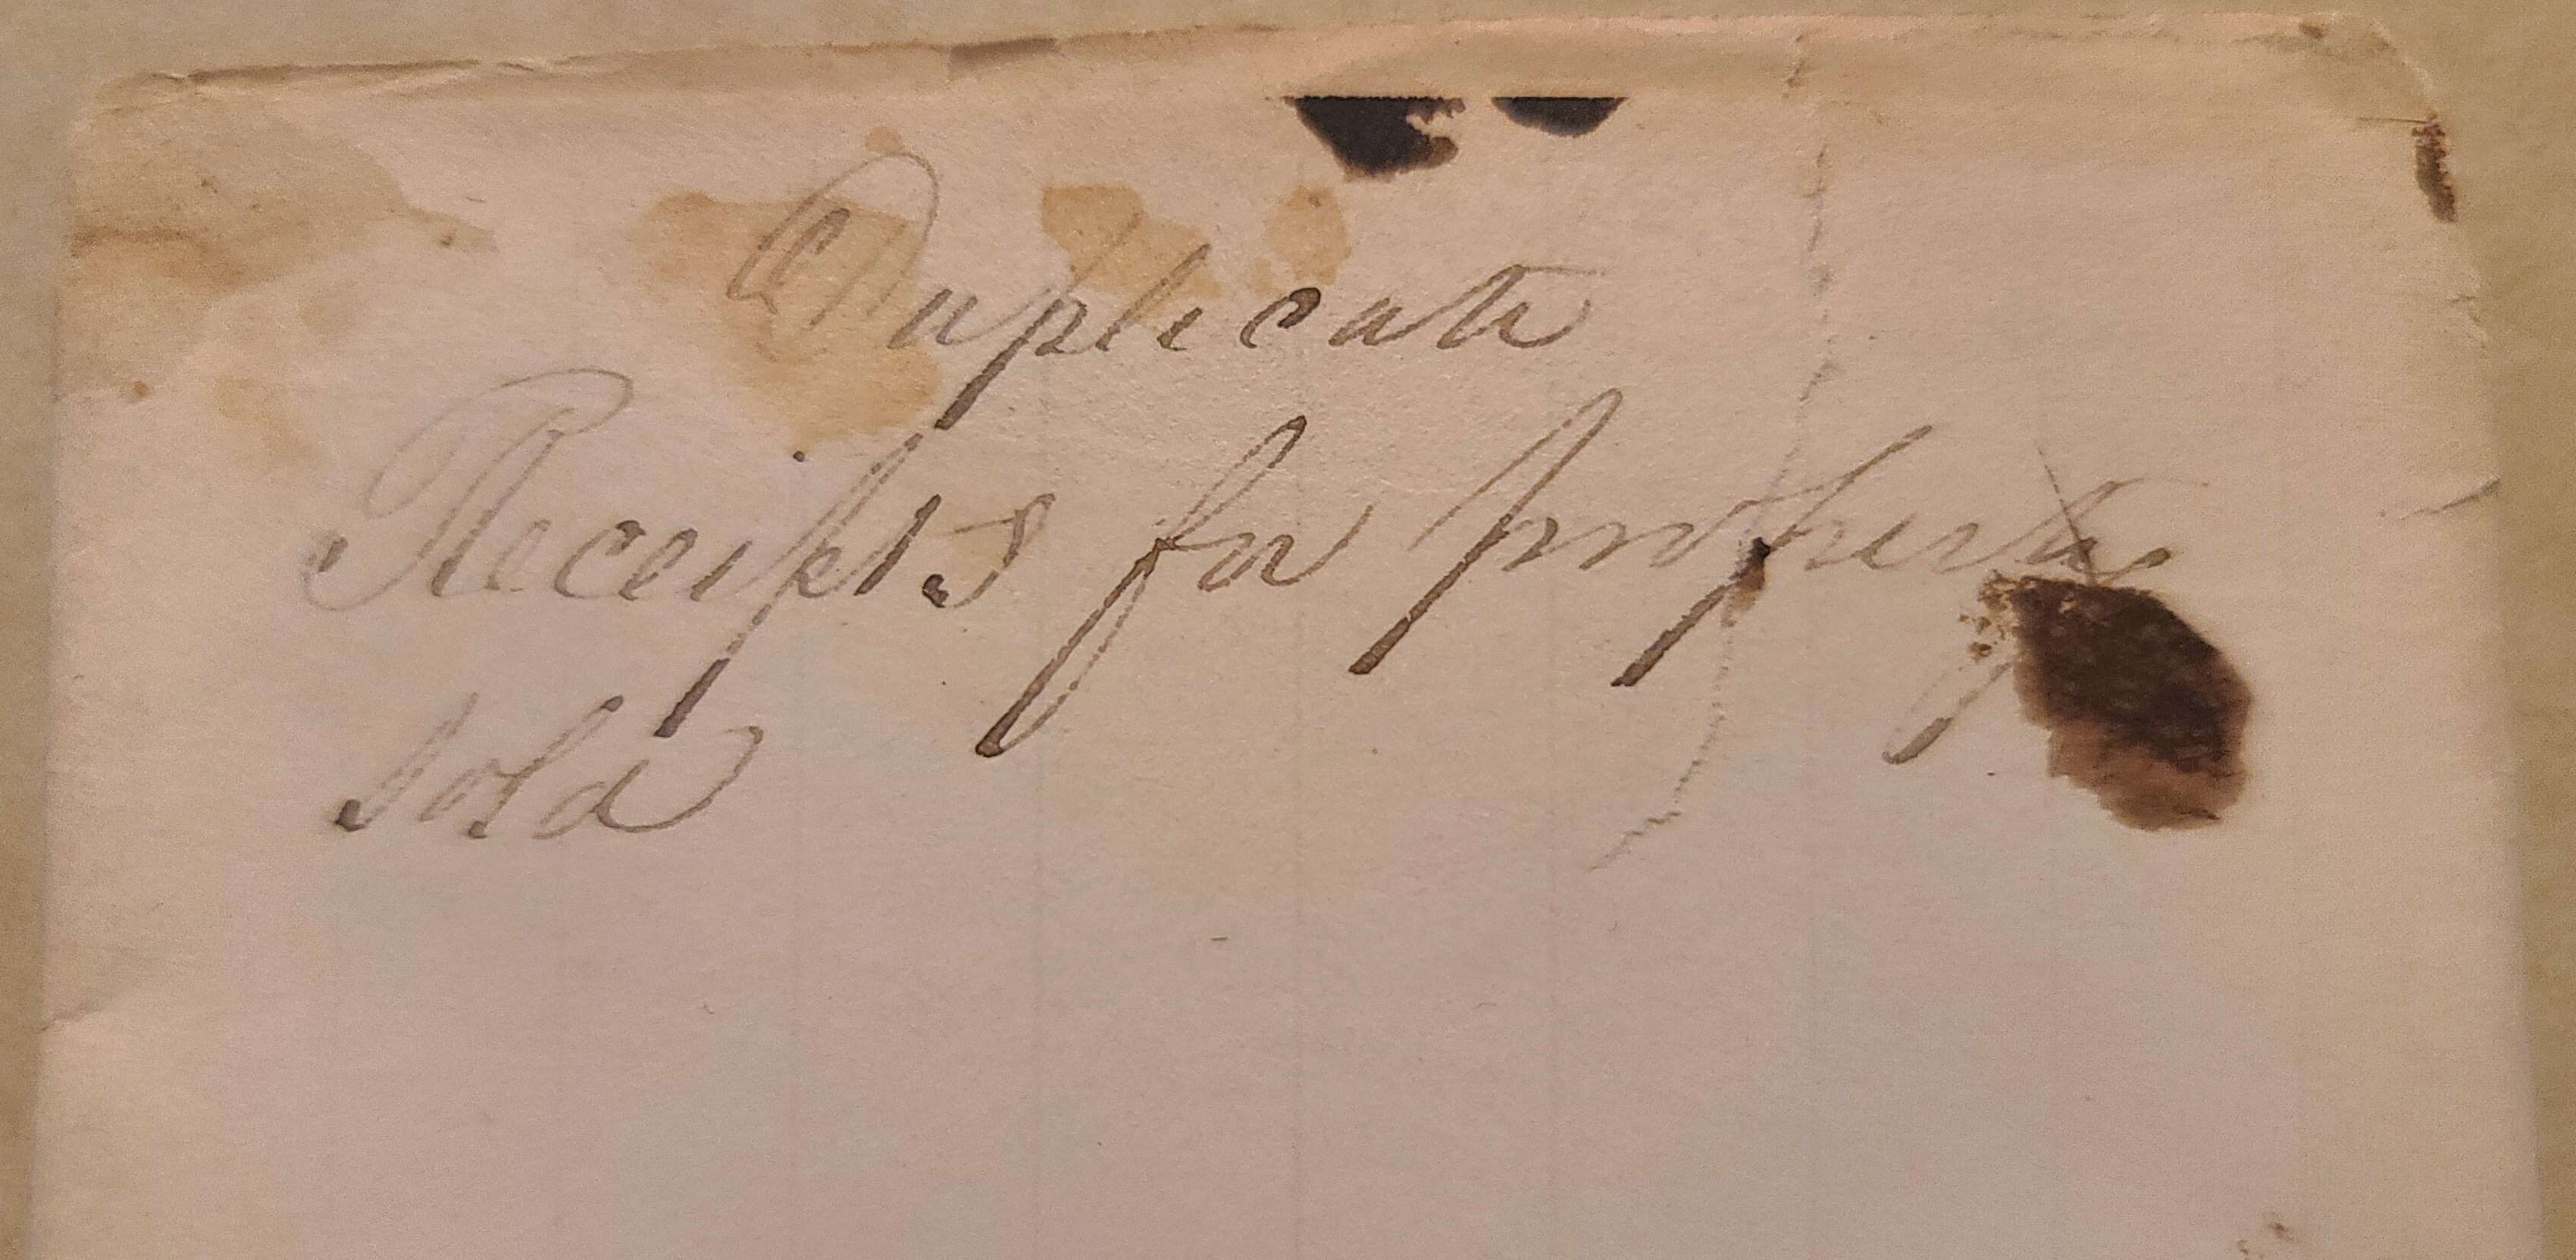 Duplicate
Receipts for property
sold